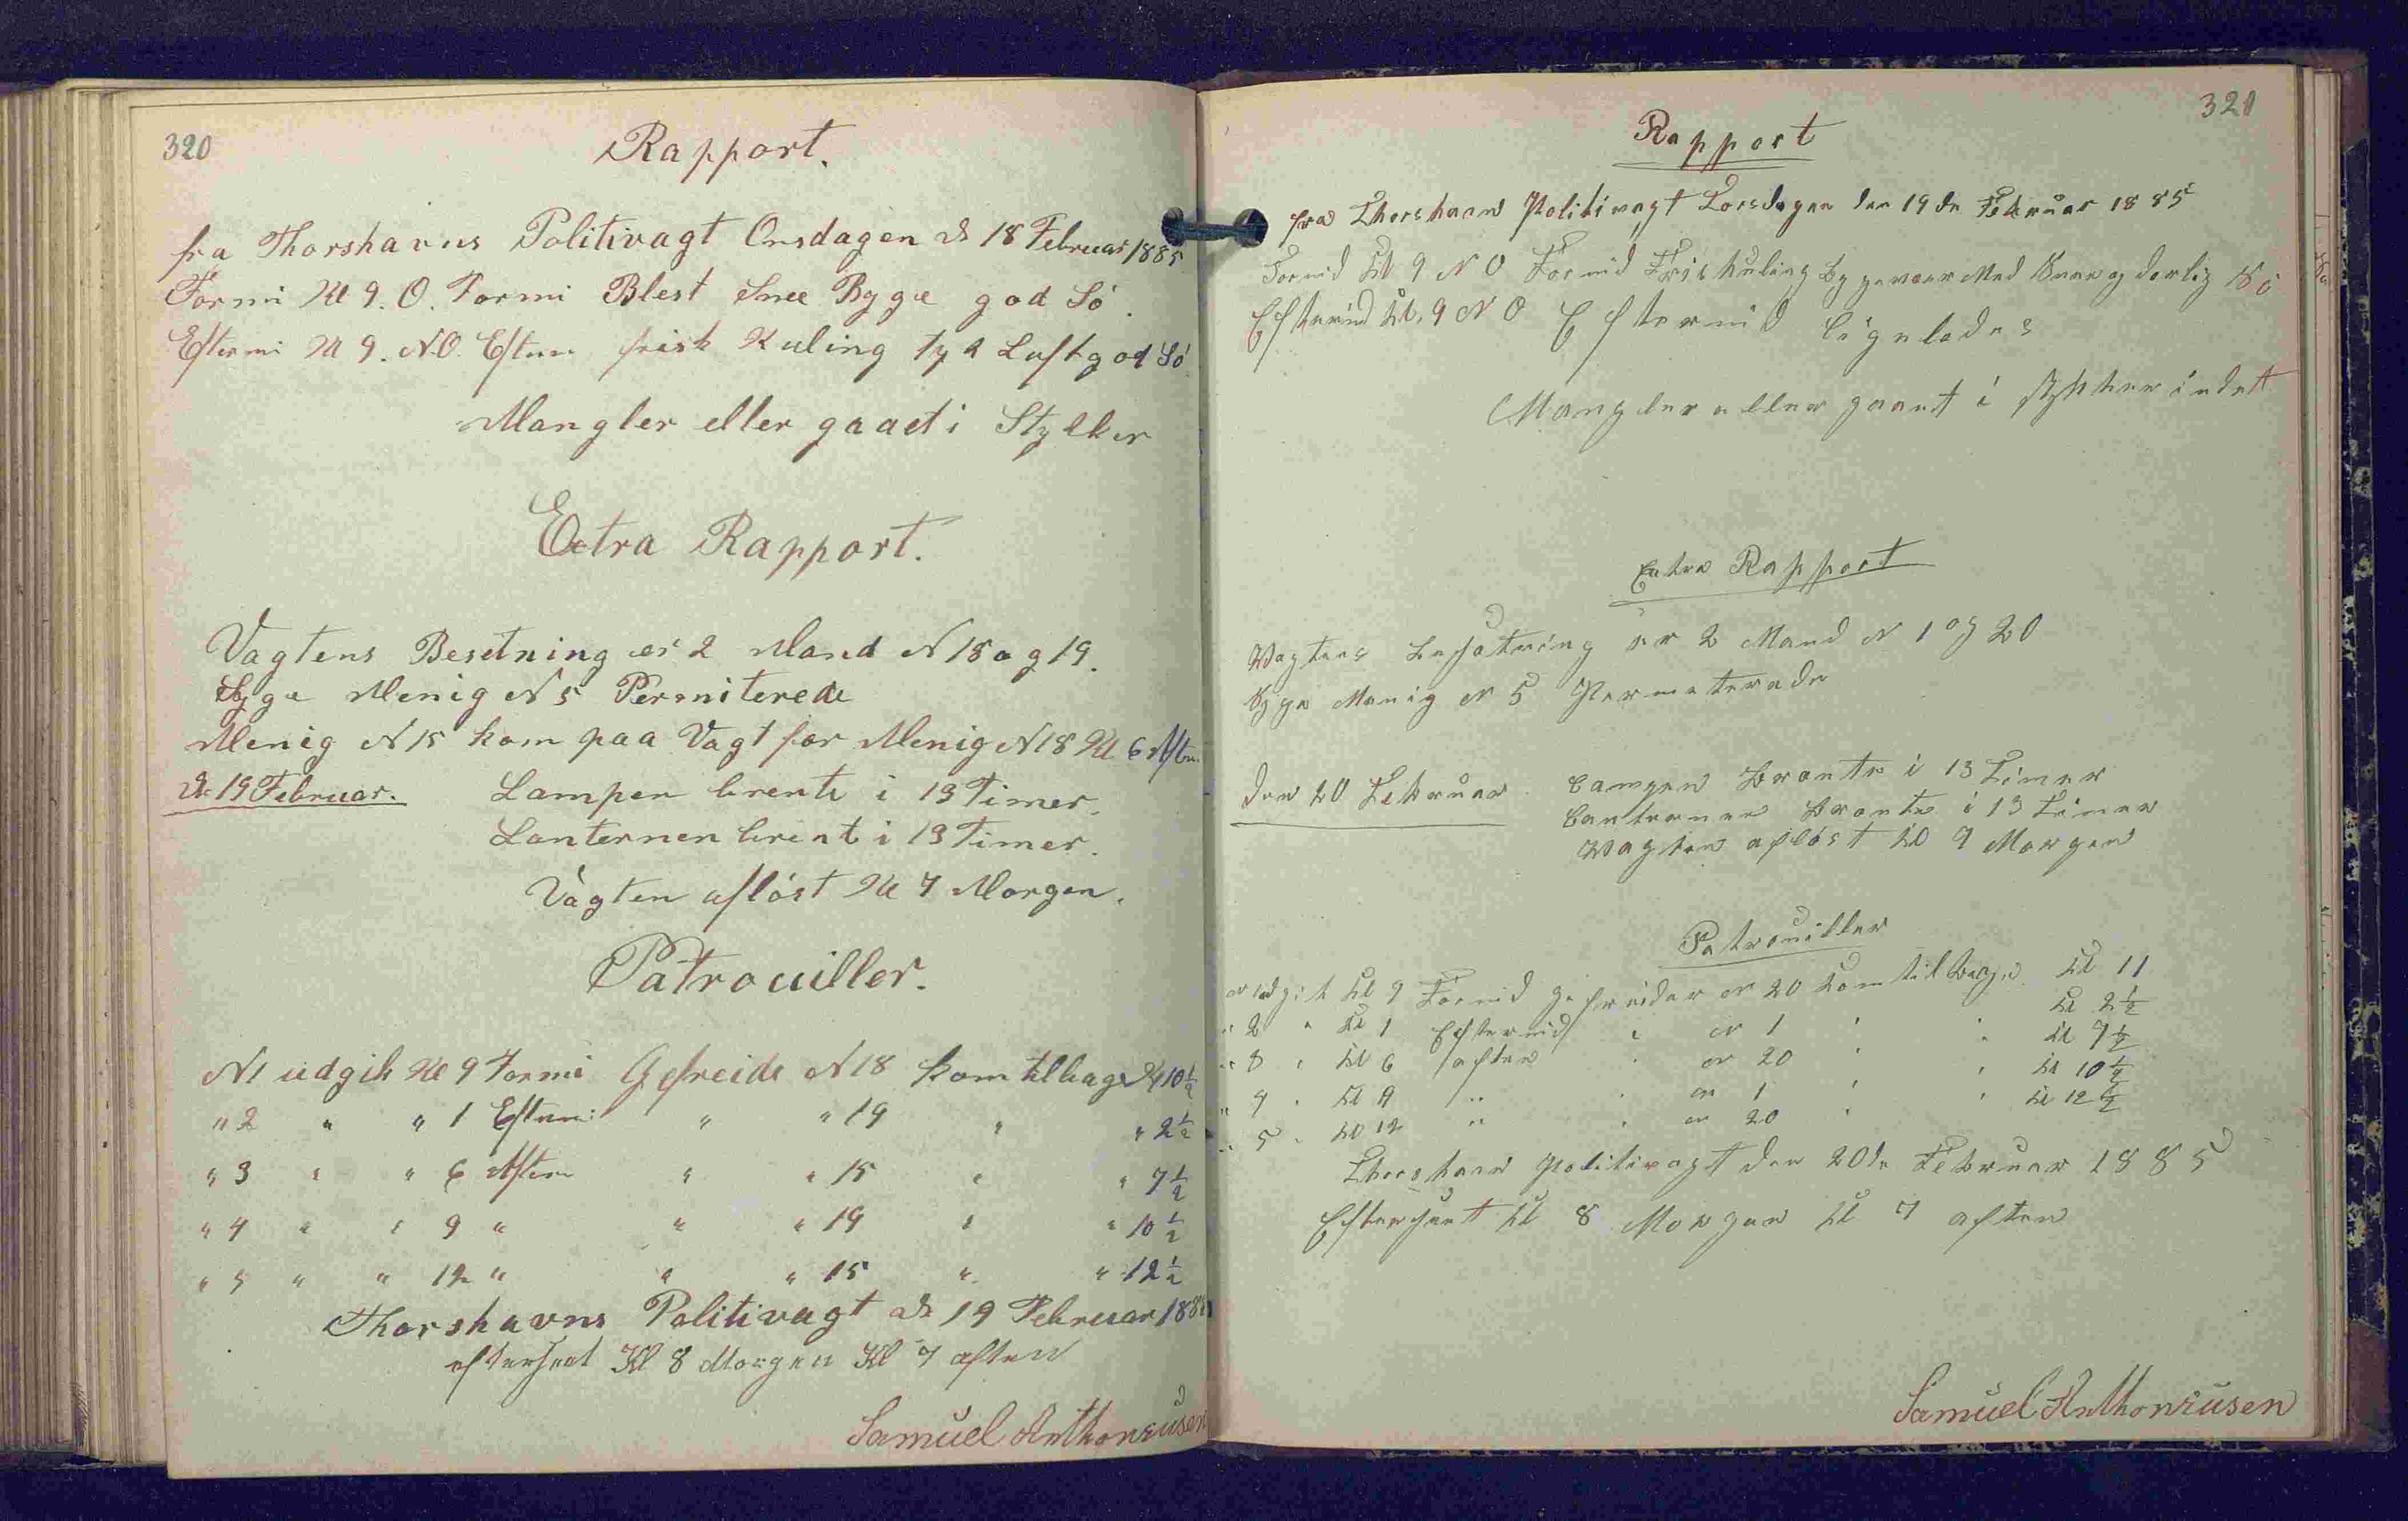 320
Rapport.
fra Thorshavns Politivagt Onsdagen d 18 Februar 1885
Formi Kl 9. O. Formi Blest Snee Byge god Sö.
Eftermi Kl 9. NO. Efterm frisk Kuling tyk Luft god Sö.
Mangler eller gaaet i Stykker
Extra Rapport.
Vagtens Besetning er 2 Mand N 18 og 19.
Syge Menig N 5 Permiterede
Menig N 15 kom paa Vagt for Menig N 18 Kl 6 Aften.
d 19 Februar. Lampen brente i 13 Timer.
Lanternen brent i 13 Timer.
Vagten aflöst Kl 7 Morgen.
Patrouiller.
N1 udgik Kl 9 Formi Gefreide N 18 kom tilbage Kl 10½
" 2 " " 1 Efterm: " " 19 " " 2½
" 3 " " 6 Aften " " 15 " " 7½
" 4 " " 9 " " " 19 " " 10½
" 5 " " 12 " " " 15 " " 12½
Thorshavns Politivagt d 19 Februar 1885
efterseet Kl 8 Morgen Kl 7 aften
Samuel Anthoniusen
321
Rapport
fra Thorshavn Politivagt Torsdagen den 19de Februar 1885
Formid Kl 9 NO Formid Friskuling Bygeveer Med Snee og derlig Sö
Eftermid Kl. 9 NO Eftermid ligeledes
Mangler eller gaaet i stykker indet
Extra Rapport
Vagtens besatning er 2 Mand N 1 og 20
Syge Menig N 5 Permeterede
den 20 Februar Lampen Brente i 13 Timer
Lanternen Brente i 13 Timer
Vagten aflöst Kl 7 Morgen
Patrouiller
N 1 udgik Kl 9 Formid gefreider N 20 kom tilbage Kl 11
" 2 " Kl 1 Eftermid " N 1 " " Kl 2½
" 3 " Kl 6 aften " N 20 " " Kl 7½
" 4 " Kl 9 " " N 1 " " Kl 10½
" 5 " Kl 12 " " N 20 " " Kl 12½
Thorshavn Politivagt den 20de Februar 1885
Efterseet Kl 8 Morgen Kl 7 aften
Samuel Anthoniusen